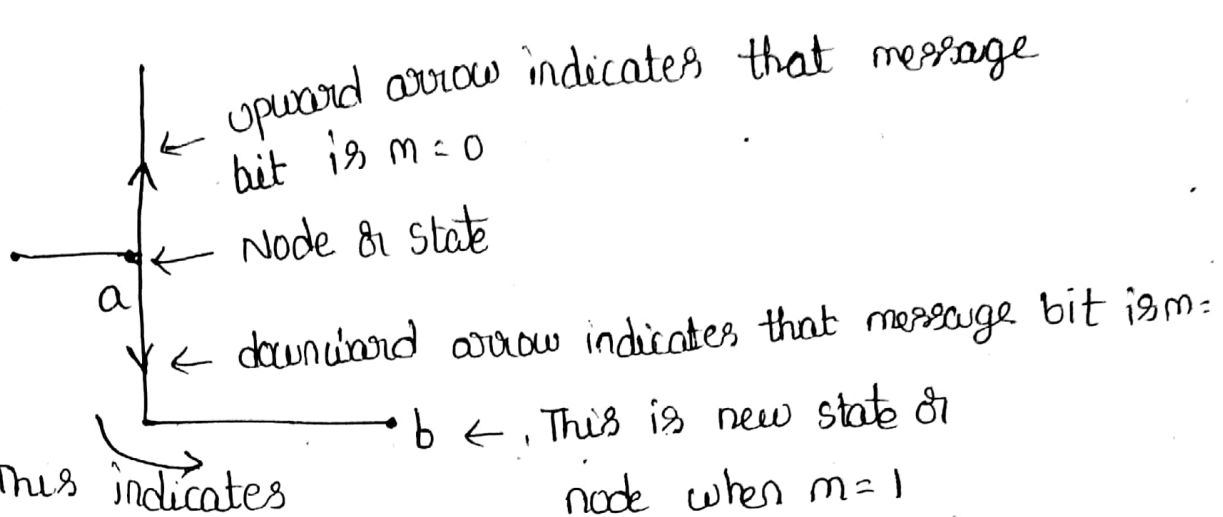 upward arrow indicates that message
bit is m = 0
Node or state
a
downward arrow indicates that message bit is m =
b ← This is new state or
This indicates
node when m = 1